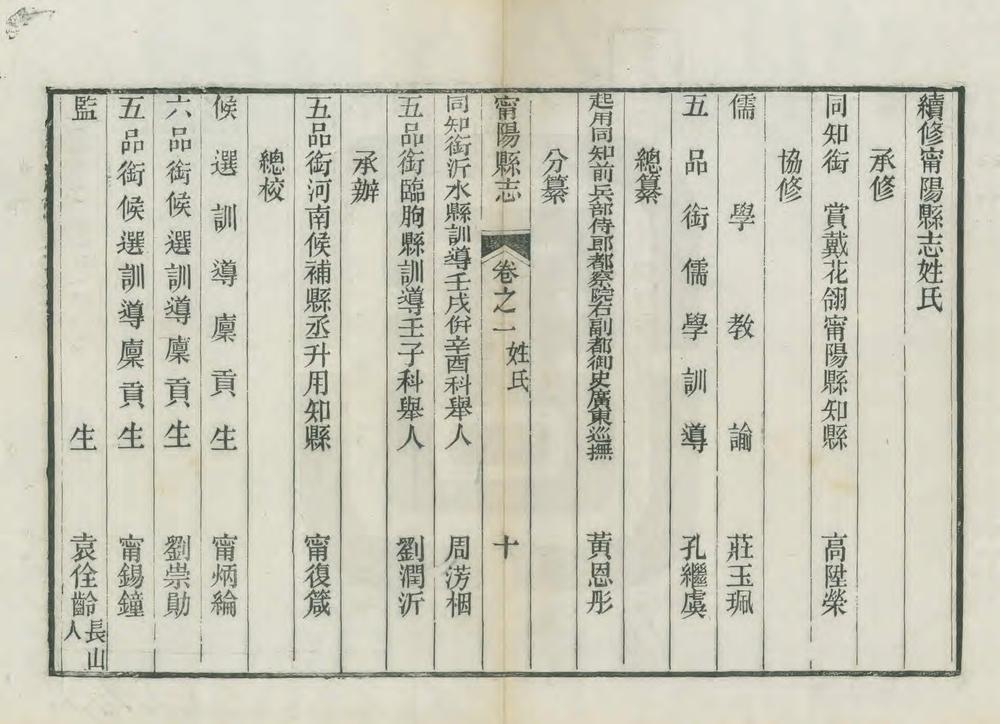 續修甯陽縣志姓氏
承修
同知銜　賞戴花翎甯陽縣知縣　高陞榮
協修
儒學教諭　莊玉珮
五品銜儒學訓導　孔繼虞
總纂
起用同知前兵部侍郎都察院右副都御史廣東巡撫　黃恩彤
分纂
甯陽縣志　卷之一　姓氏　十
同知銜沂水縣訓導壬戌併辛酉科舉人　周涝棞
五品銜臨朐縣訓導壬子科舉人　劉潤沂
承辦
五品銜河南候補縣丞升用知縣　甯復箴
總校
候選訓導廩貢生　甯炳綸
六品銜候選訓導廩貢生　劉崇勛
五品銜候選訓導廩貢生　甯錫鐘
監生　袁佺齡長山人